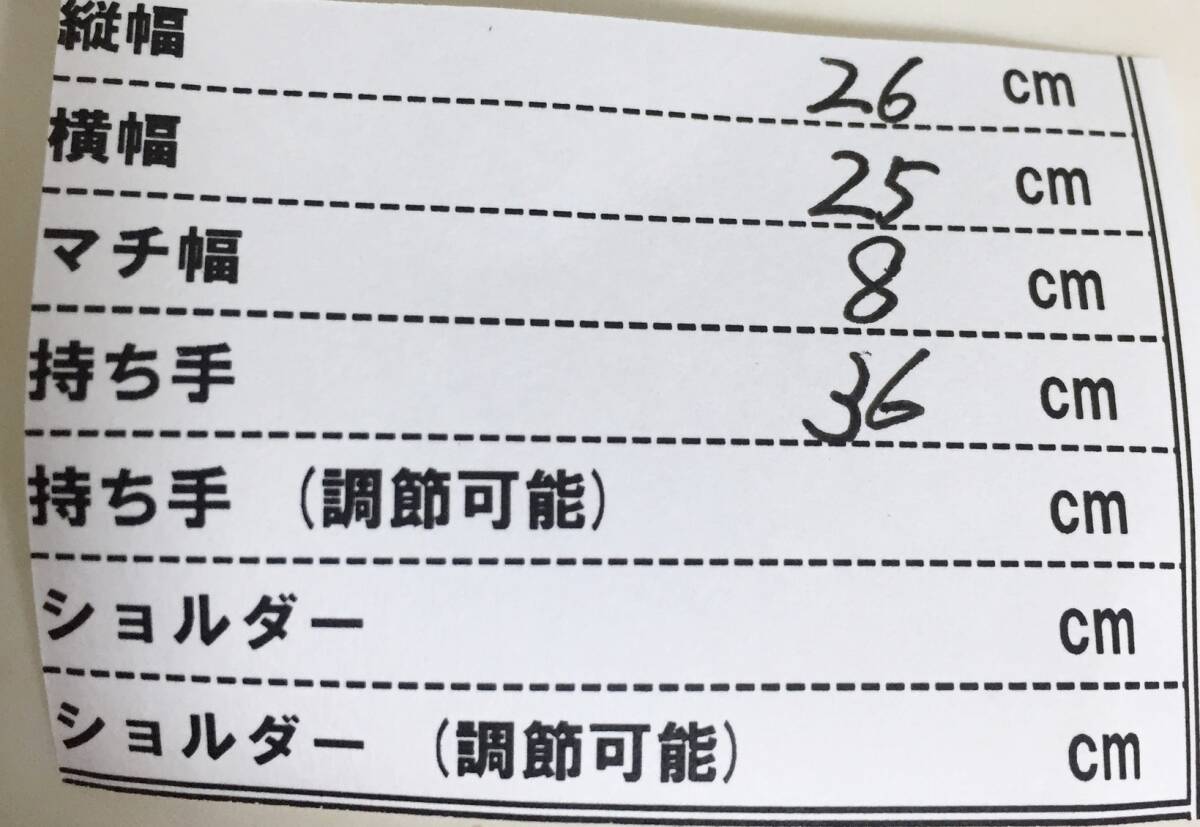 縦幅 26 cm
横幅 25 cm
マチ幅 8 cm
持ち手 36 cm
持ち手 (調節可能) cm
ショルダー cm
ショルダー (調節可能) cm